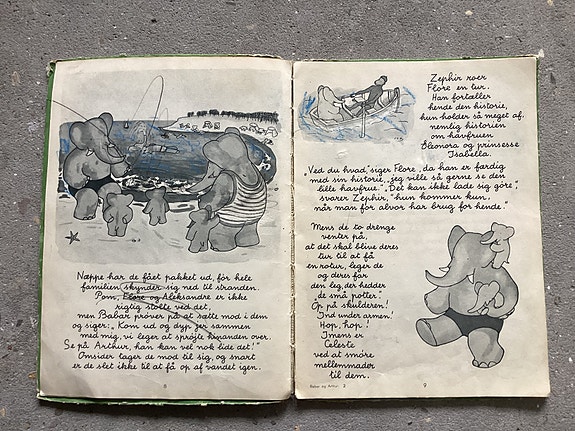 Næppe har de fået pakket ud, før hele
familien skynder sig ned til stranden.
Pom, Flore og Aleksandre er ikke
rigtig stolte ved det,
men Babar prøver på at sætte mod i dem
og siger: „Kom ud og dyp jer sammen
med mig, vi leger at sprøjte hinanden over.
Se på Arthur, han kan vel nok lide det!"
Omsider tager de mod til sig, og snart
er de slet ikke til at få op af vandet igen.
8
Zephir roer
Flore en tur.
Han fortæller
hende den historie,
hun holder så meget af,
nemlig historien
om havfruen
Eleonora og prinsesse
Isabella.
„Ved du hvad," siger Flore, da han er færdig
med sin historie, „jeg ville så gerne se den
lille havfrue." „Det kan ikke lade sig gøre",
svarer Zephir, „hun kommer kun,
når man for alvor har brug for hende."
Mens de to drenge
venter på,
at det skal blive deres
tur til at få
en rotur, leger de
og deres far
den leg, der hedder
de små potter.
Op på skulderen!
Ind under armen!
Hop, hop!
Imens er
Celeste
ved at smöre
mellemmader
til dem.
Babar og Arthur. 2
9